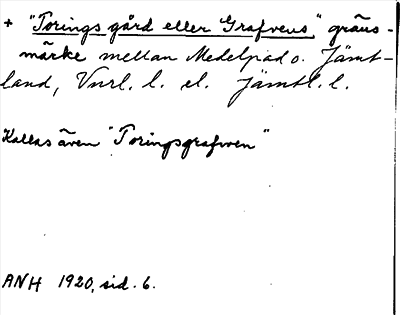 + "Torings gård eller "Grafvens" gräns-
märke mellan Medelpad o. Jämt-
land, Vnrl. l. el. Jämtl. l.
Kallas även "Toringsgrafven"
ANH 1920, sid. 6.